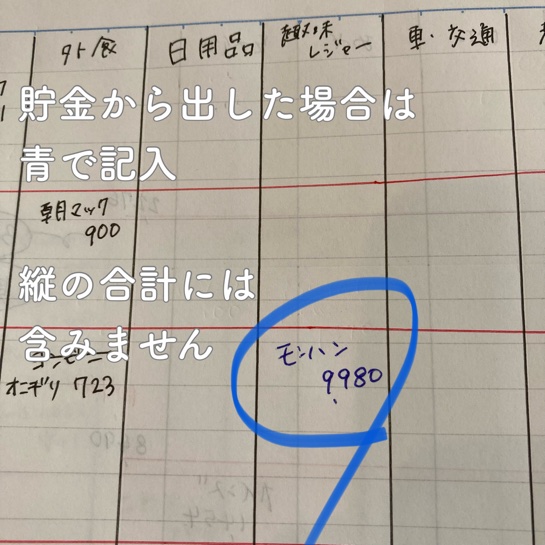 外食 日用品 趣味 車・交通
レジャー
貯金から出した場合は
青で記入
朝マック
900
縦の合計には
含みません
モンハン
9980
コンビニ
オニギリ 723